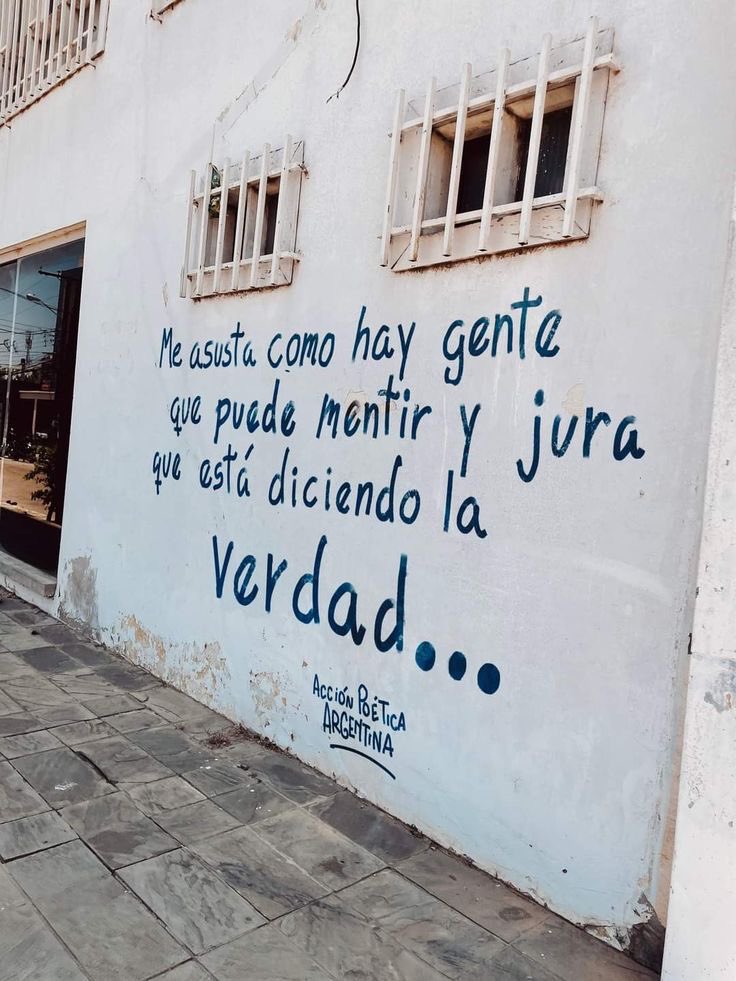 Me asusta como hay gente
que puede mentir y jura
que está diciendo la
verdad...
Acción Poética
ARGENTINA